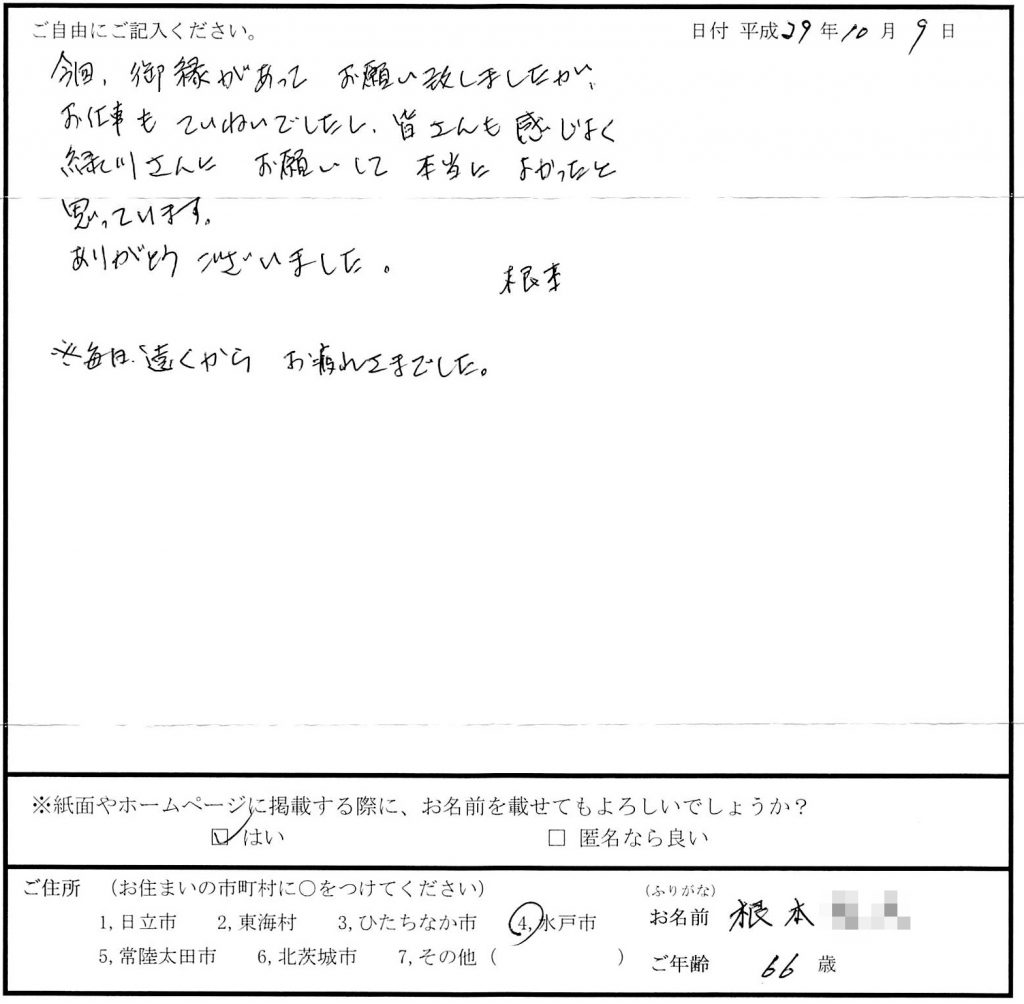 ご自由にご記入ください。 日付 平成29年10月9日
今回、御縁があって お願い致しましたが、
お仕事も ていねいでしたし、皆さんも感じよく
緑川さんに お願いして 本当に よかったと
思っています。
ありがとう ございました。
根本
※毎日、遠くから お疲れさまでした。
※紙面やホームページに掲載する際に、お名前を載せてもよろしいでしょうか?
☑ はい □ 匿名なら良い
ご住所 (お住まいの市町村に○をつけてください)
1,日立市 2,東海村 3,ひたちなか市 4,水戸市
5,常陸太田市 6,北茨城市 7,その他( )
(ふりがな)
お名前 根本
ご年齢 66 歳